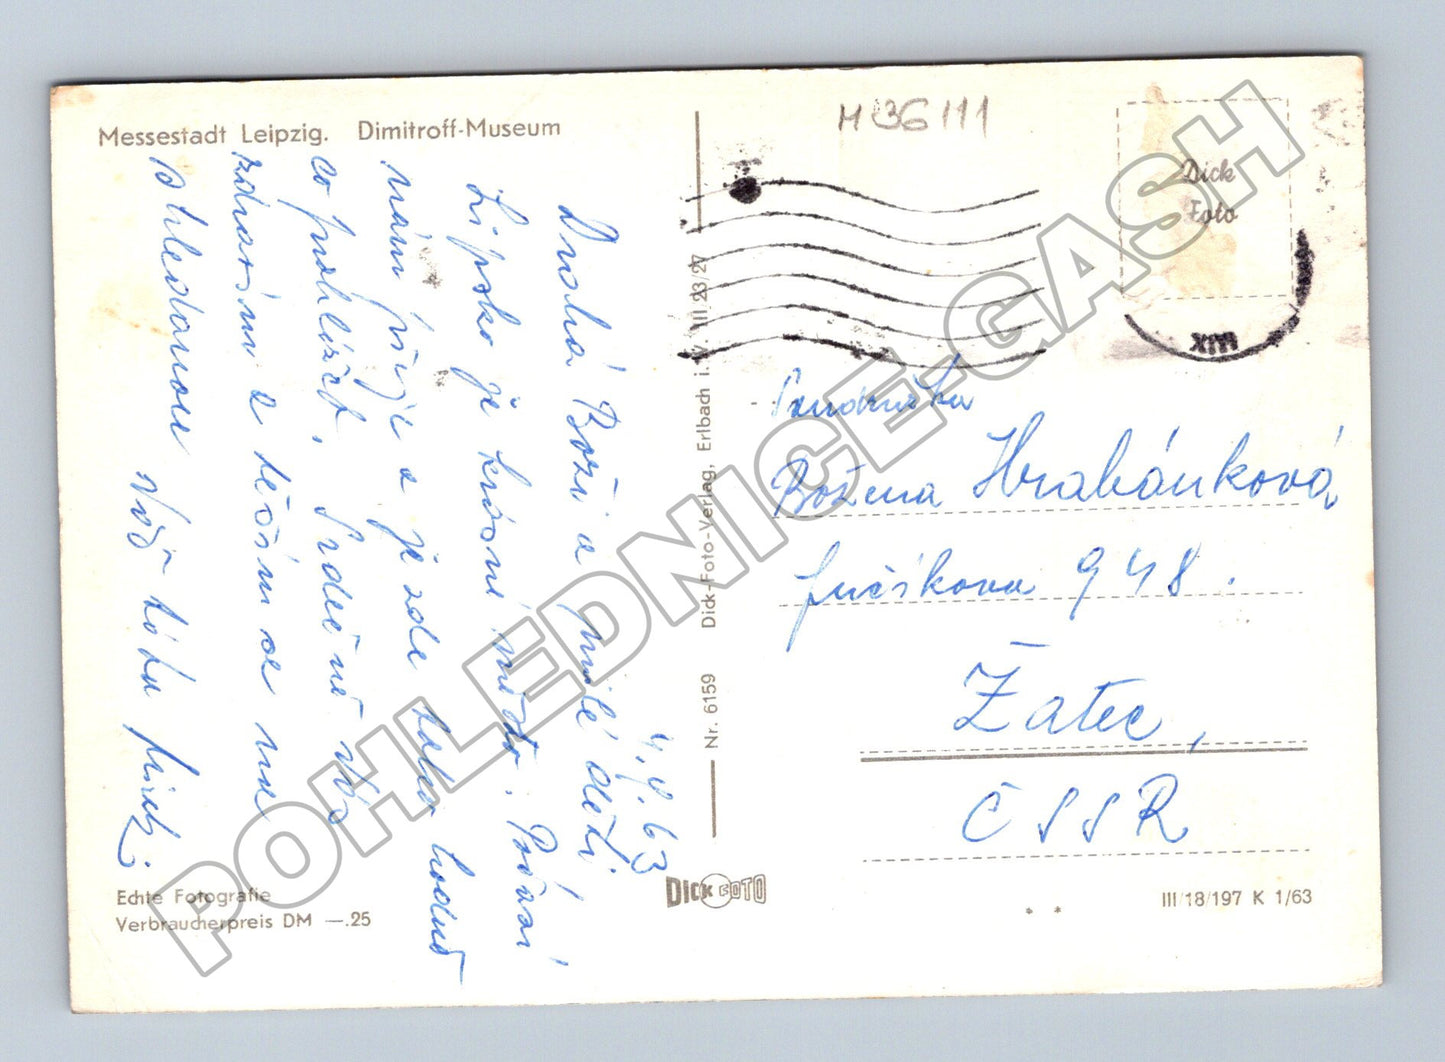 Messestadt Leipzig. Dimitroff-Museum
4.V.63
Drahá Boži a milé děti
Lipsko je krásné město. Počasí
nám přeje a je zde toho hodně
co prohlížet. Srdečně Vás
zdravím a těším se na
shledanou Vaš táta
Echte Fotografie
Verbraucherpreis DM —.25
Nr. 6159 Dick-Foto-Verlag, Erlbach i. V. III 23/27
DICK FOTO
M 136 111
Dick
Foto
XIII
Soudružka
Božena Hrabánková
Fučíkova 948.
Žatec,
ČSSR
III/18/197 K 1/63
POHLEDNICE-GASH